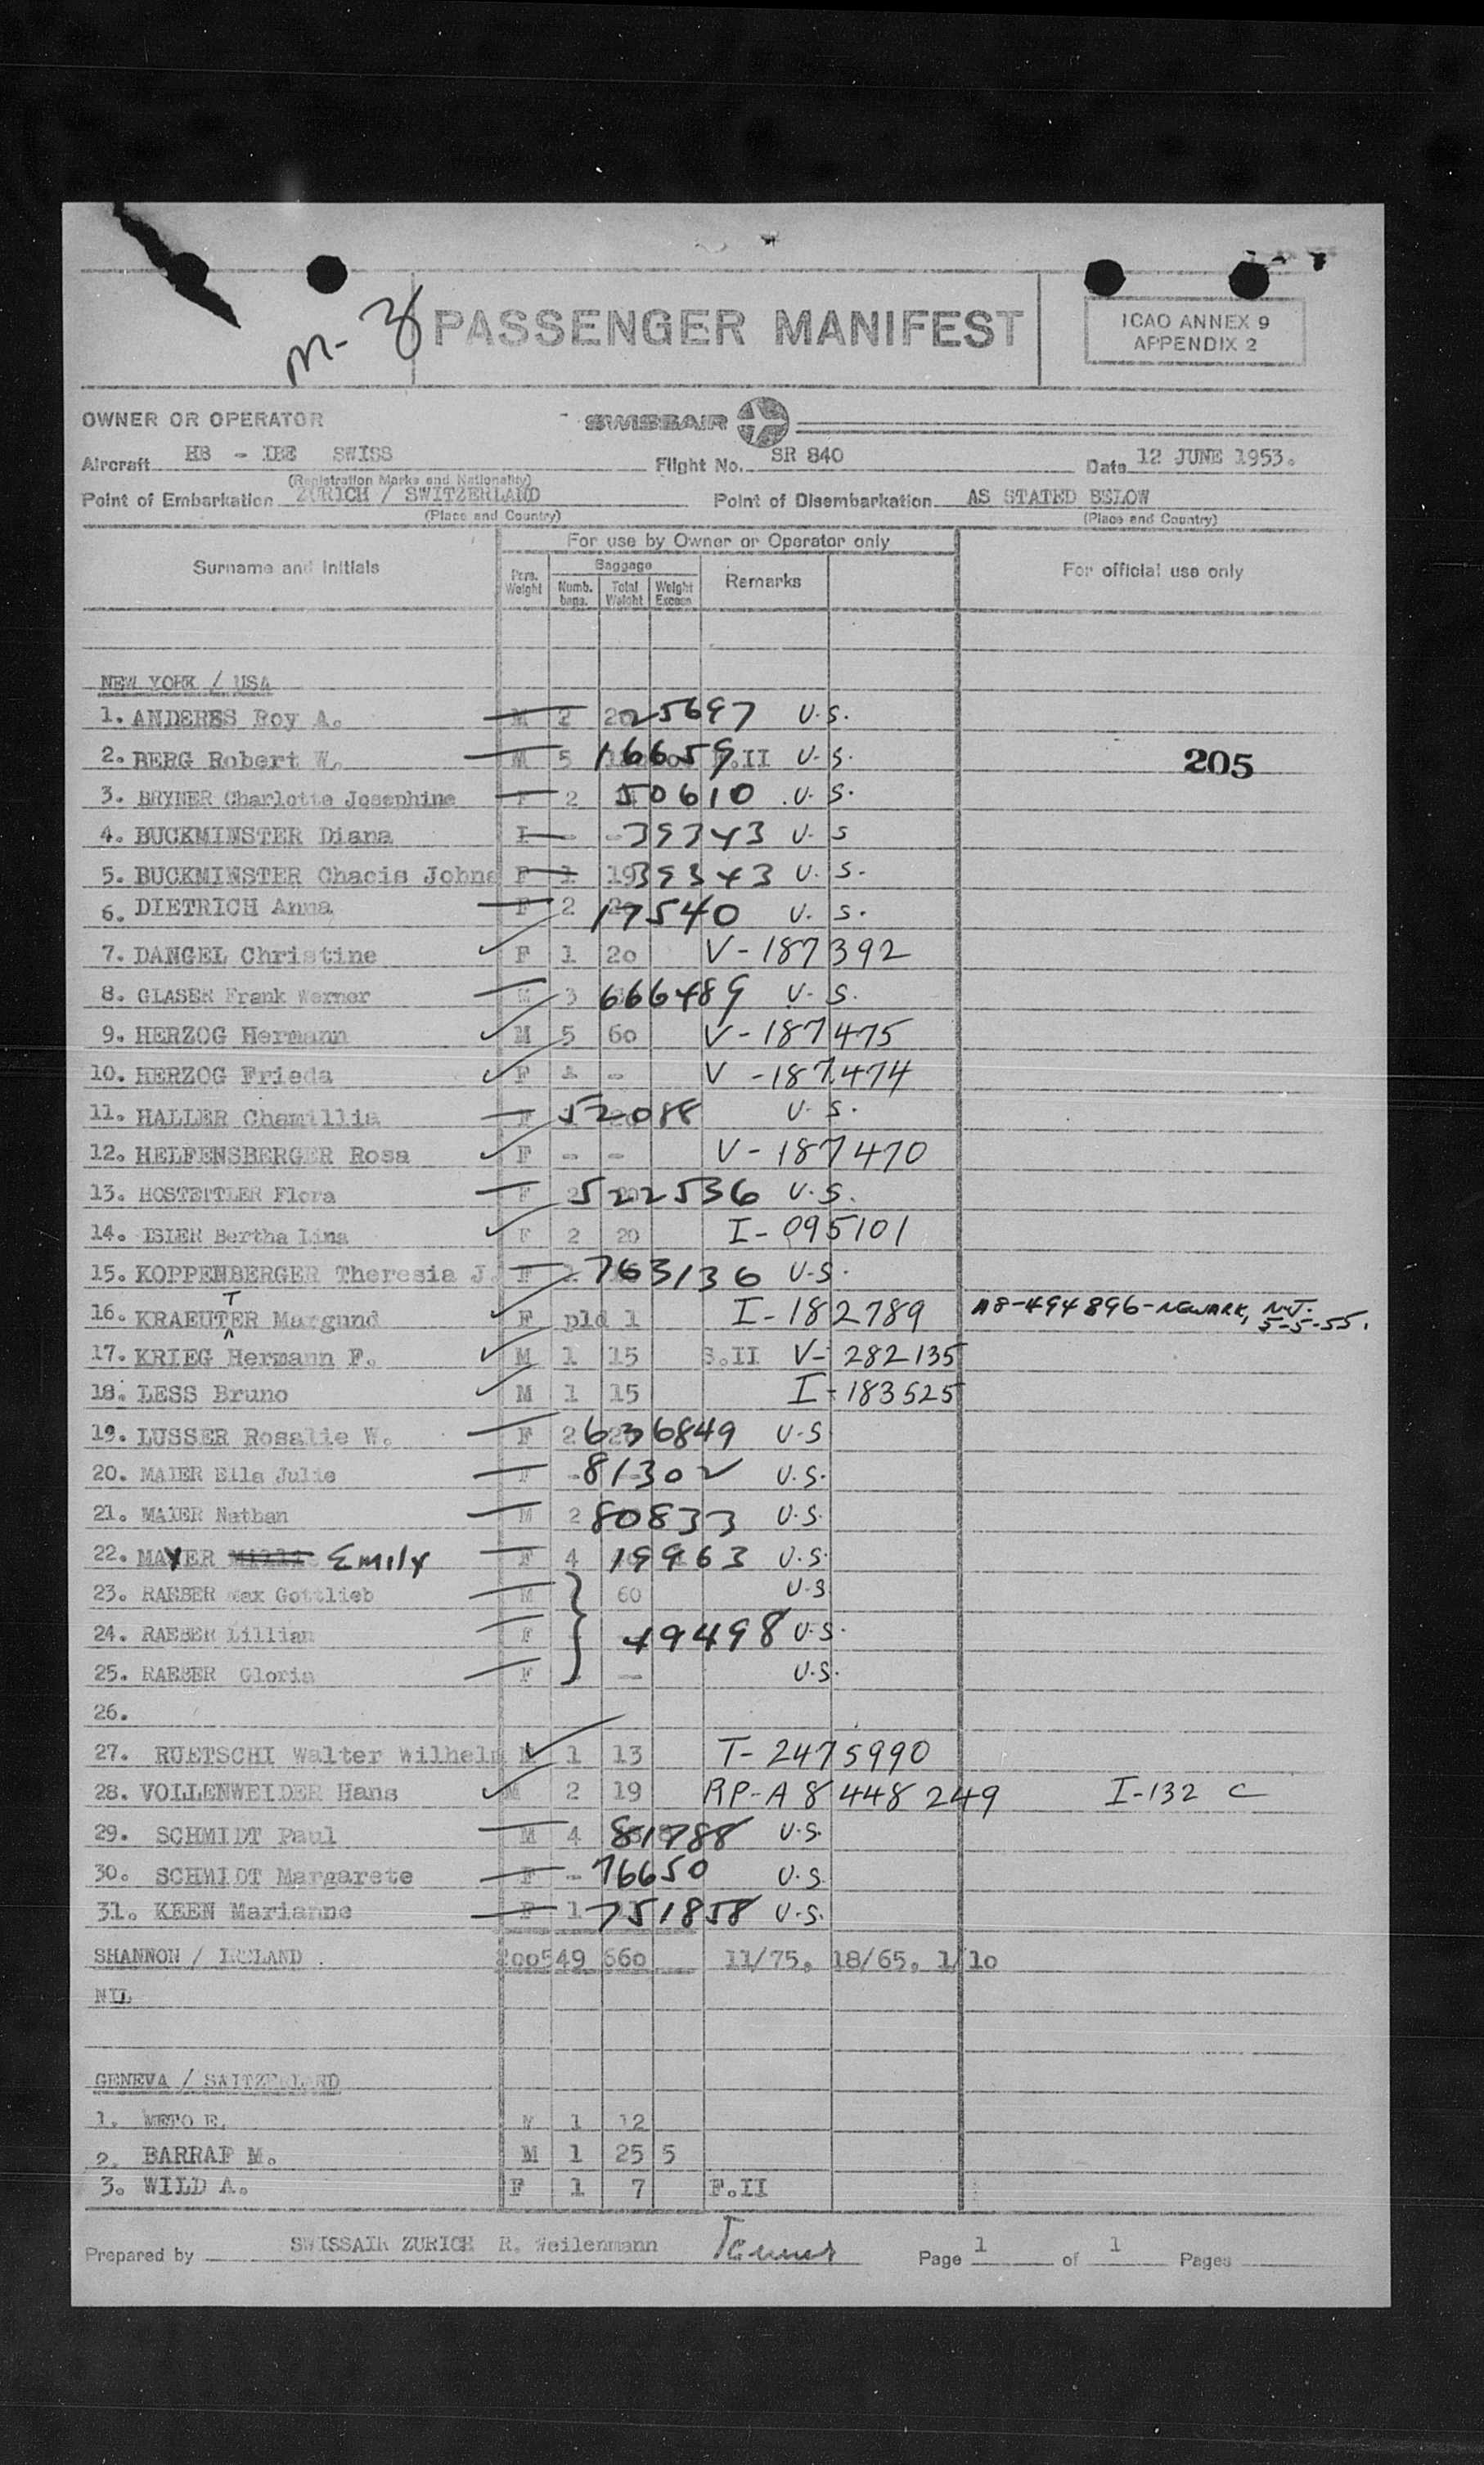 m-3
PASSENGER MANIFEST
ICAO ANNEX 9
APPENDIX 2
OWNER OR OPERATOR
SWISSAIR
Aircraft HB - IBE SWISS Flight No. SR 840 Date 12 JUNE 1953.
(Registration Marks and Nationality)
Point of Embarkation ZURICH / SWITZERLAND Point of Disembarkation AS STATED BELOW
(Place and Country) (Place and Country)
For use by Owner or Operator only
Surname and Initials Pers. Weight Baggage Numb. bags. Total Weight Weight Excess Remarks For official use only
NEW YORK / USA
1. ANDERES Roy A. M 2 25697 U.S.
2. BERG Robert W. M 5 16659 .II U.S. 205
3. BRYNER Charlotte Josephine F 2 50610 U.S.
4. BUCKMINSTER Diana I - - 39343 U.S
5. BUCKMINSTER Chacis Johna F 1 19 39343 U.S.
6. DIETRICH Anna F 2 17540 U.S.
7. DANGEL Christine F 1 20 V-187392
8. GLASER Frank Werner M 3 666489 U.S.
9. HERZOG Hermann M 5 60 V-187475
10. HERZOG Frieda F - - V-187474
11. HALLER Chamillia F 52088 U.S.
12. HELFENSBERGER Rosa F - - V-187470
13. HOSTETTLER Flora F 2 522536 U.S.
14. ISLER Bertha Lina F 2 20 I-095101
15. KOPPENBERGER Theresia J. F 1 763136 U.S.
16. KRAEUTTER Margund F pld 1 I-182789 A8-494896-NEWARK, N.J. 5-5-55.
17. KRIEG Hermann F. M 1 15 S.II V-282135
18. LESS Bruno M 1 15 I-183525
19. LUSSER Rosalie W. F 2 636849 U.S
20. MAIER Ella Julie F - 81302 U.S.
21. MAIER Nathan M 2 80833 U.S.
22. MAYER Emily F 4 19963 U.S.
23. RAEBER Max Gottlieb M 60 U.S
24. RAEBER Lillian F 49498 U.S.
25. RAEBER Gloria F - — U.S.
26.
27. RUETSCHI Walter Wilhelm M 1 13 T-2475990
28. VOLLENWEIDER Hans M 2 19 RP-A8 448 249 I-132 C
29. SCHMIDT Paul M 4 81788 U.S.
30. SCHMIDT Margarete F - 76650 U.S
31. KEEN Marianne F 1 751858 U.S.
SHANNON / IRELAND 2005 49 660 11/75, 18/65, 1/10
NIL
GENEVA / SWITZERLAND
1. METO E. M 1 12
2. BARRAF M. M 1 25 5
3. WILD A. F 1 7 F.II
Prepared by SWISSAIR ZURICH R. Weilenmann Page 1 of 1 Pages